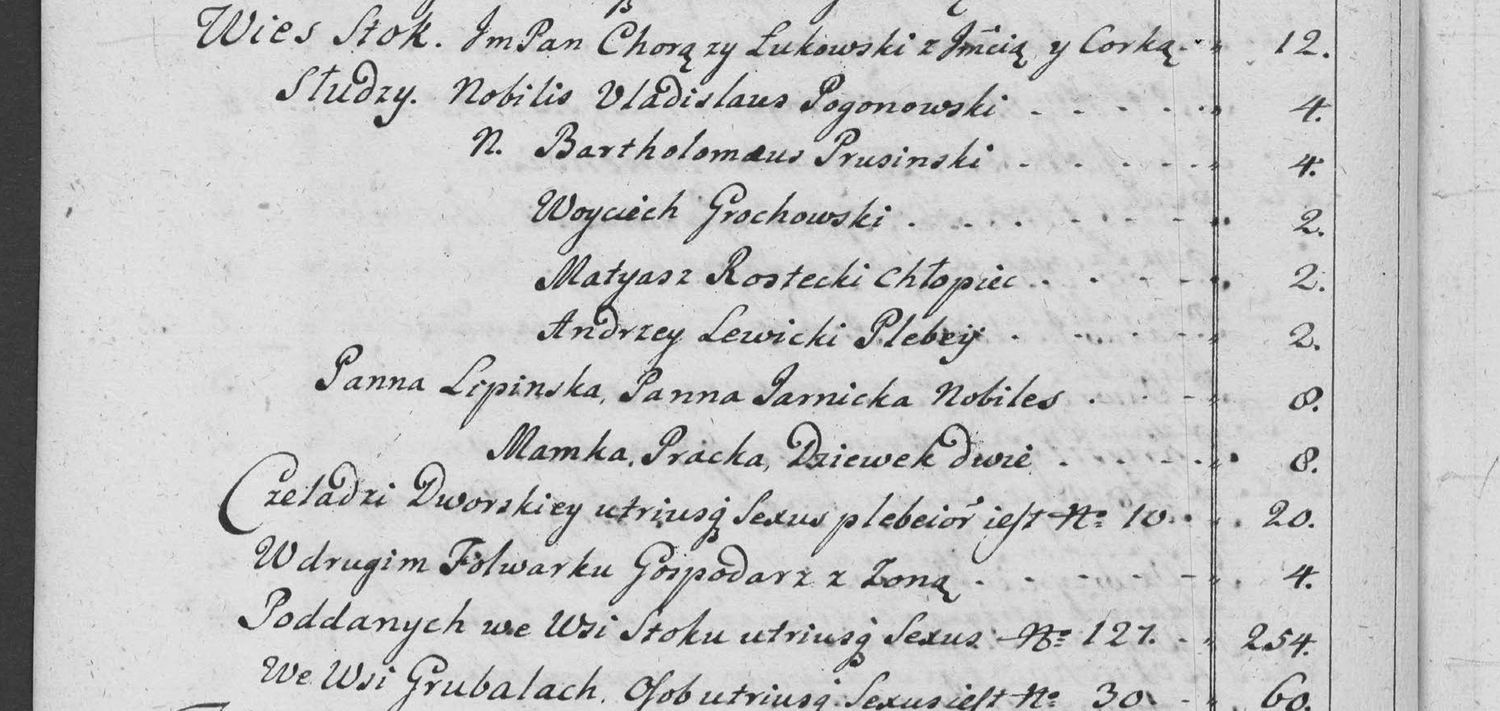 Wies Stok. JmPan Chorązy Łukowski z Jm̃cią y Corką. - " 12.
Słudzy. Nobilis Vladislaus Pogonowski . - - - - " 4.
N. Bartholomæus Prusinski . - . - - " 4.
Woyciech Grochowski . . - . - - - " 2.
Matyasz Rostecki Chłopiec . . - . - - " 2.
Andrzey Lewicki Plebeÿ . - . . - - " 2.
Panna Lipinska, Panna Jarnicka Nobiles . . - - " 8.
Mamka, Pracka, Dziewek dwie . . - - - " 8.
Czeladzi Dworskiey utriusq̃ Sexus plebeior̃ iest No: 10. . " . 20.
W drugim Folwarku Gospodarz z Zoną . - - - - - " . 4.
Poddanych we Wsi Stoku utriusq̃ Sexus No: 127. - " 254.
We Wsi Grubalach. Osob utriusq̃ Sexus iest No: 30. - " 60.